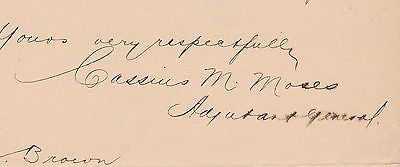 Yours very respectfully
Cassius M. Moses
Adjutant General.
. Brown